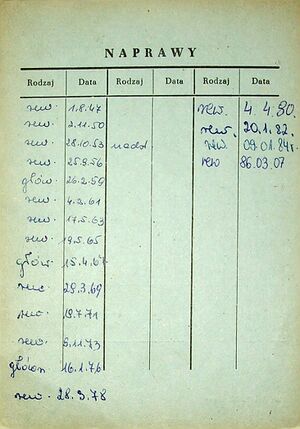 NAPRAWY
Rodzaj Data Rodzaj Data Rodzaj Data
rew. 1.8.47 rew. 4.4.80.
rew. 2.11.50 rew. 20.1.82.
rew. 28.10.53 nadd rew. 09.01.84r.
rew. 25.9.56 rew 86.03.07
głów. 26.2.59
rew. 4.2.61
rew. 17.5.63
rew. 19.5.65
głów. 15.4.67
rew. 29.3.69
rew. 19.7.71
rew. 9.11.73
główn 16.1.76
rew. 28.9.78